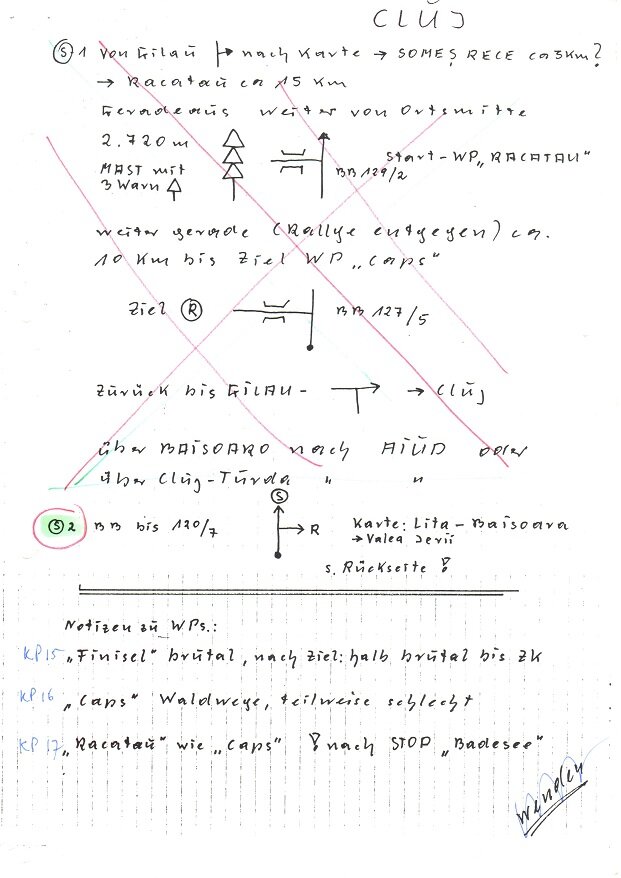 CLUJ
(S) 1 von Gilau nach Karte → SOMEŞ RECE ca 3km?
→ Racatau ca 15 km
Geradeaus weiter von Ortsmitte
2.720 m
MAST mit
3 Warn
BB 129/2
Start-WP „RACATAU"
weiter gerade (Rallye entgegen) ca.
10 km bis Ziel WP „Caps"
Ziel (R)
BB 127/5
Zurück bis GILAU - → Cluj
über BAISOARO nach AIUD oder
über Clug-Turda " "
(S) 2 BB bis 120/7
(S)
R
Karte: Lita - Baisoara
→ Valea Ierii
s. Rückseite !
Notizen zu WPs.:
KP 15 „Finisel" brutal, nach Ziel: halb brutal bis ZK
KP 16 „Caps" Waldwege, teilweise schlecht
KP 17 „Racatau" wie „Caps" ! nach STOP „Badesee"
wenden